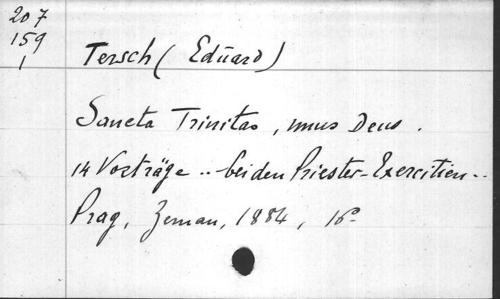 207
159
1
Tersch (Eduard)
Sancta Trinitas, unus Deus.
14 Vorträge .. bei den Priester-Exercitien ..
Prag, Zeman, 1884, 16º